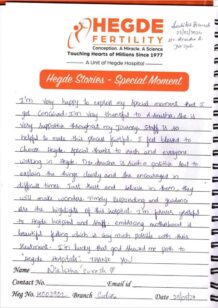 HEGDE
FERTILITY
Conception. A Miracle. A Science
Touching Hearts of Millions Since 1977
A Unit of Hegde Hospital
Hegde Stories - Special Moment
I'm very happy to explain my special moment that I
got Conceived. I'm very thankful to Dr. She is
very supportive throughout my journey. Staff is so
helpful to make this phase joyful. I feel blessed to
choose Hegde. Special thanks to each and everyone
working in Hegde. is such a positive but to
explain the things clearly and she encouraged in
difficult times. Just trust and believe in them, they
will make wonders. Timely responding and guidance
are the highlights of this hospital. I'm forever grateful
to Hegde hospital and Staff. embracing motherhood is
beautiful feeling which is very much possible with this
treatment. I'm lucky that god showed me path to
"Hegde Hospitals". THANK YOU
Name
Contact No. Email id
Heg No. Branch Date